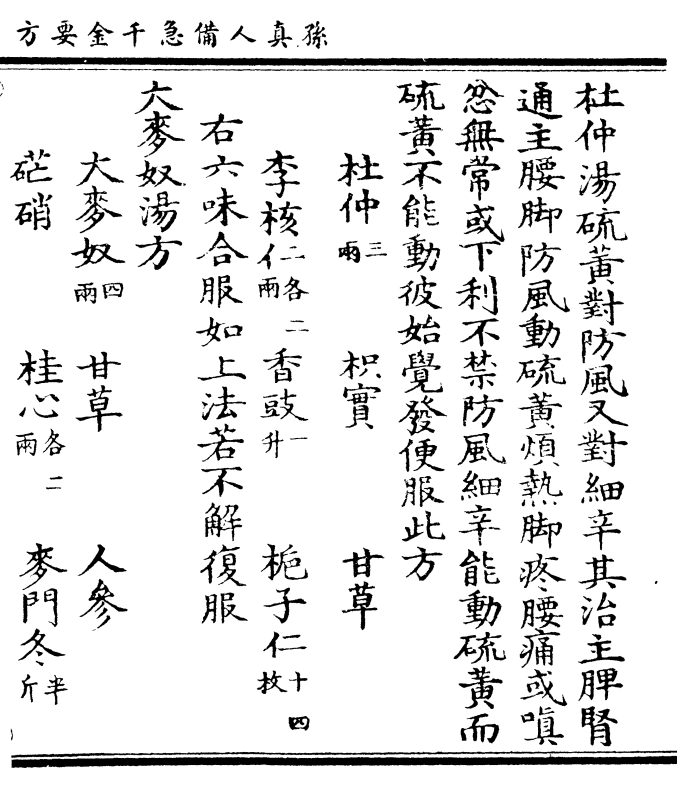 孫真人備急千金要方
杜仲湯硫黃對防風又對細辛其治主脾腎
通主腰脚防風動硫黃煩熱脚疼腰痛或嗔
忿無常或下利不禁防風細辛能動硫黃而
硫黃不能動彼始覺發便服此方
杜仲三兩 枳實 甘草
李核仁各二兩 香豉二升 梔子仁十四枚
右六味合服如上法若不解復服
大麥奴湯方
大麥奴四兩 甘草 人參
芒硝 桂心各二兩 麥門冬半斤